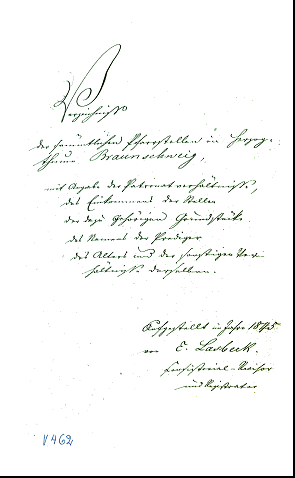 Verzeichniß
der sämmtlichen Pfarrstellen in Herzog-
thume Braunschweig,
mit Angabe der Patronatverhältniße,
des Einkommens der Stellen
der dazu gehörigen Grundstücke
des Namens der Prediger
des Alters und der sonstigen Ver-
hältniße derselben.
Aufgestellt im Jahre 1875
von E. Lasbeck.
Consistorial-Revisor
und Registrator
V 462